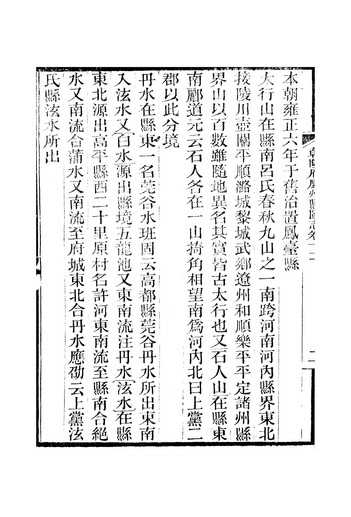 本朝雍正六年于舊治置鳳臺縣
太行山在縣南呂氏春秋九山之一南跨河南河內縣界東北
接陵川壺關平順潞城黎城武鄉遼州和順樂平平定諸州縣
界山以百數雖隨地異名其實皆古太行也又石人山在縣東
南酈道元云石人各在一山掎角相望南爲河內北曰上黨二
郡以此分境
丹水在縣東一名莞谷水班固云高都縣莞谷丹水所出東南
入泫水又白水源出縣境五龍池又東南流注丹水泫水在縣
東北源出高平縣西二十里原村名許河東南流至縣南合絶
水又南流合蒲水又南流至府城東北合丹水應劭云上黨泫
氏縣泫水所出
二